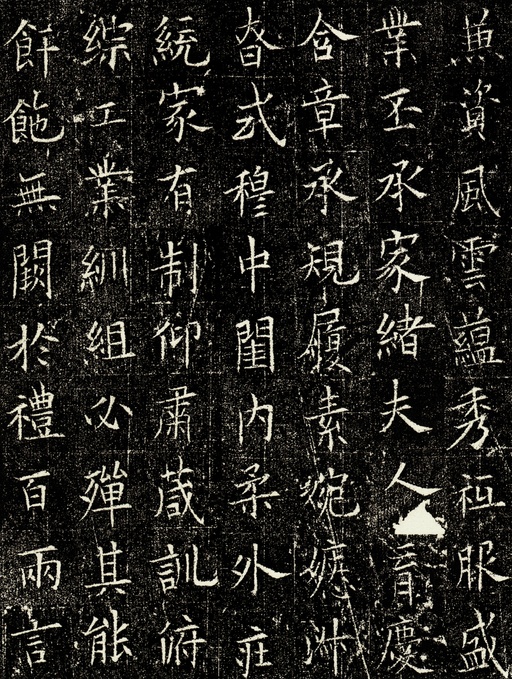 兼資風雲蘊秀祗服盛
業丕承家緒夫人育慶
含章承規履素婉嫕淑
眘式穆中閨内柔外莊
統家有制仰肅葴訓俯
綜工業紃組必殫其能
餅無闕於禮百兩言